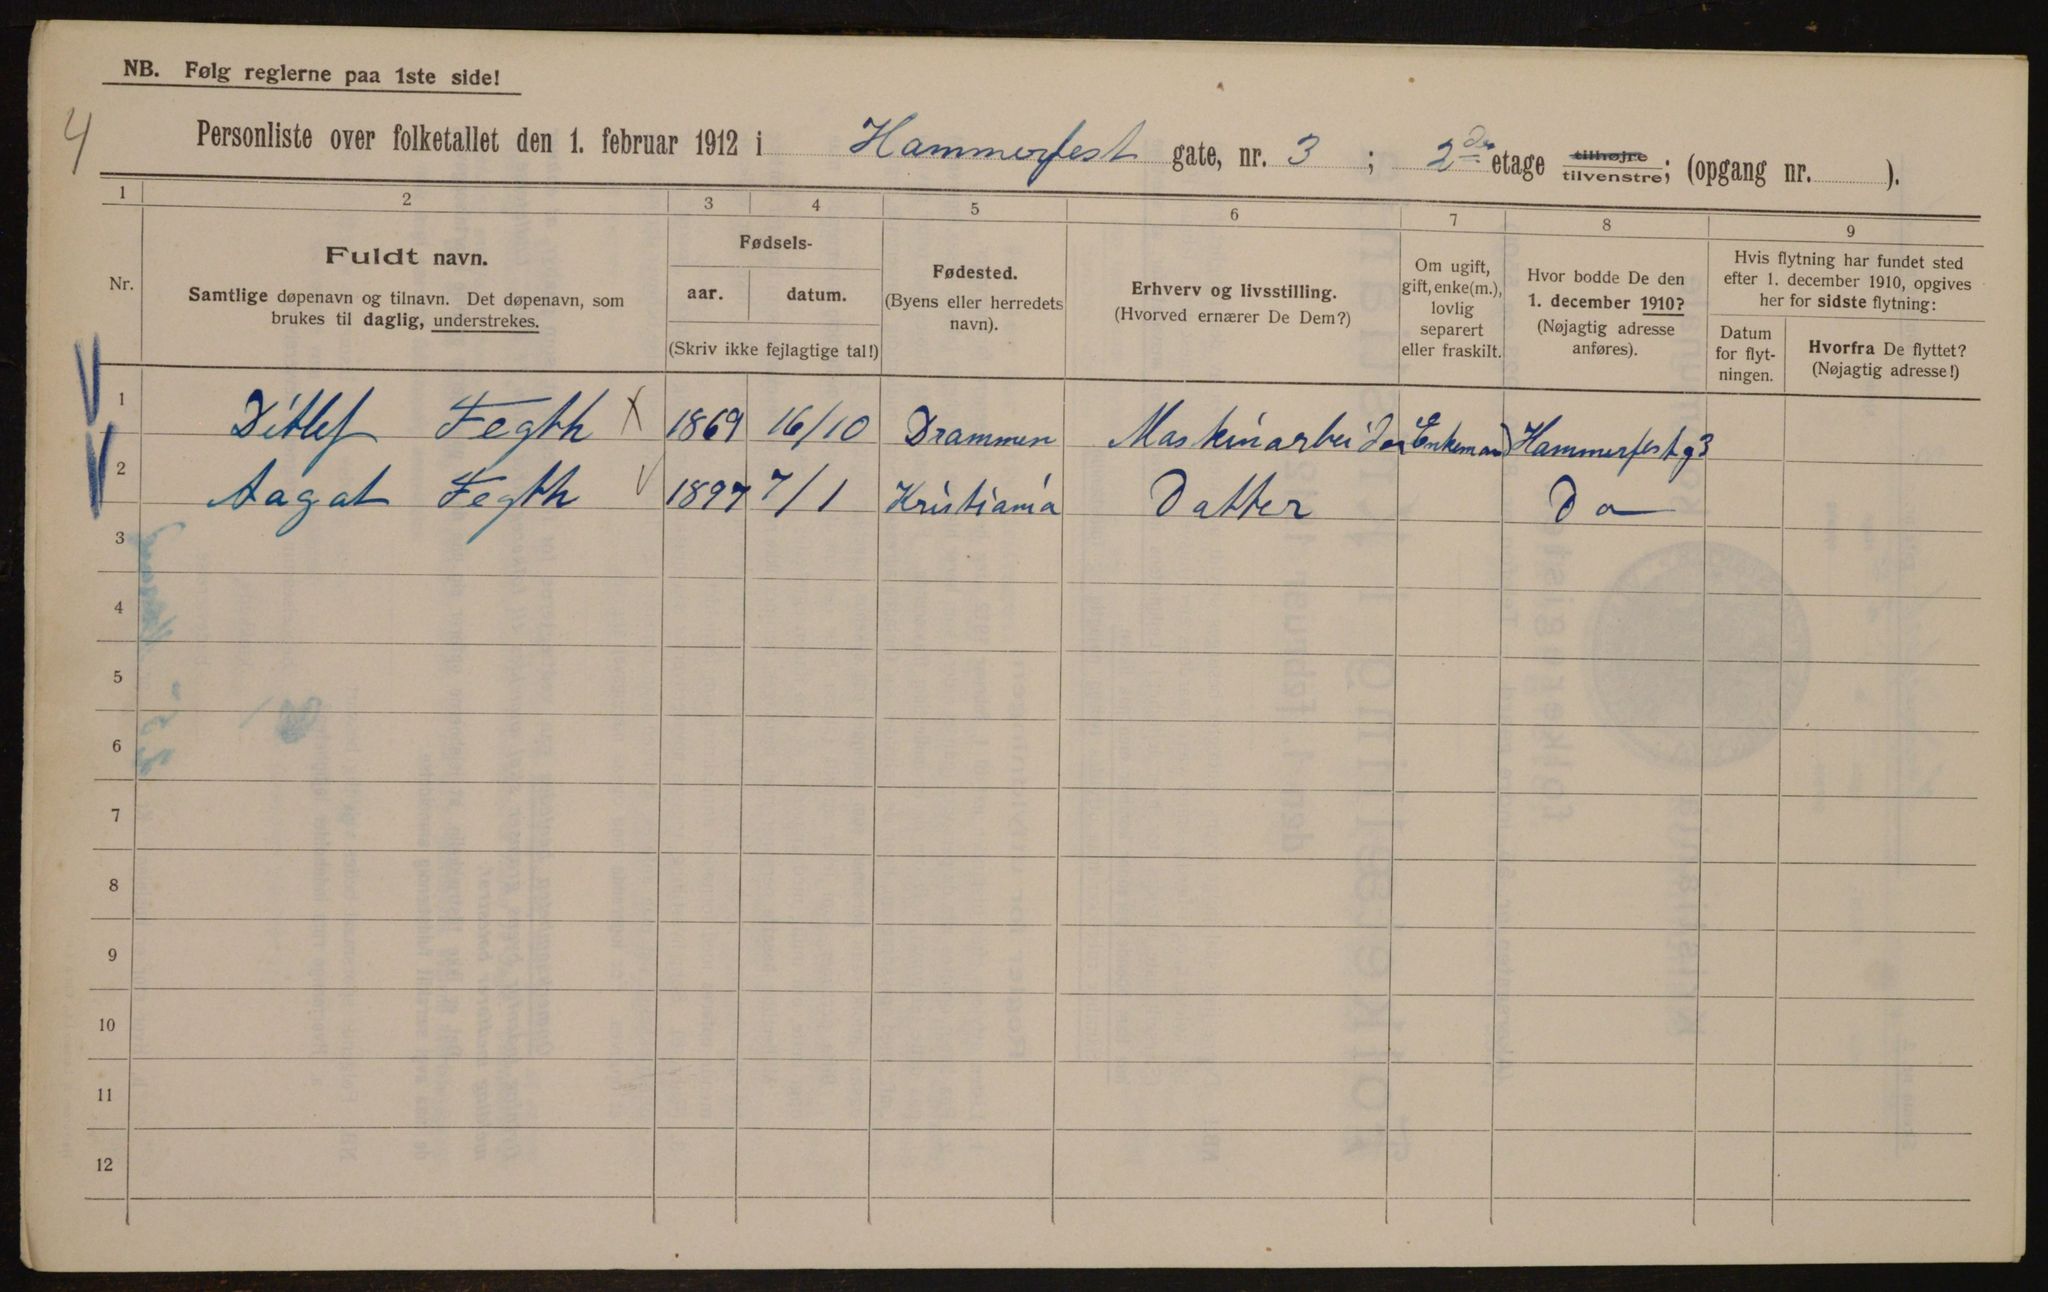 NB. Følg reglerne paa 1ste side!
4
Personliste over folketallet den 1. februar 1912 i Hammerfest gate, nr. 3 ; 2den etage tilhøjre tilvenstre; (opgang nr. ).
1 2 3 4 5 6 7 8 9
Nr.
Fuldt navn.
Samtlige døpenavn og tilnavn. Det døpenavn, som
brukes til daglig, understrekes.
Fødsels-
aar. datum.
(Skriv ikke fejlagtige tal!)
Fødested.
(Byens eller herredets
navn).
Erhverv og livsstilling.
(Hvorved ernærer De Dem?)
Om ugift,
gift, enke(m.),
lovlig
separert
eller fraskilt.
Hvor bodde De den
1. december 1910?
(Nøjagtig adresse
anføres).
Hvis flytning har fundet sted
efter 1. december 1910, opgives
her for sidste flytning:
Datum
for flyt-
ningen.
Hvorfra De flyttet?
(Nøjagtig adresse!)
1 Ditlef Fegth X 1869 16/10 Drammen Maskinarbeider Enkeman Hammerfestg 3
2 Aagat Fegth 1897 7/1 Kristiania Datter Do
3
4
5
6
7
8
9
10
11
12